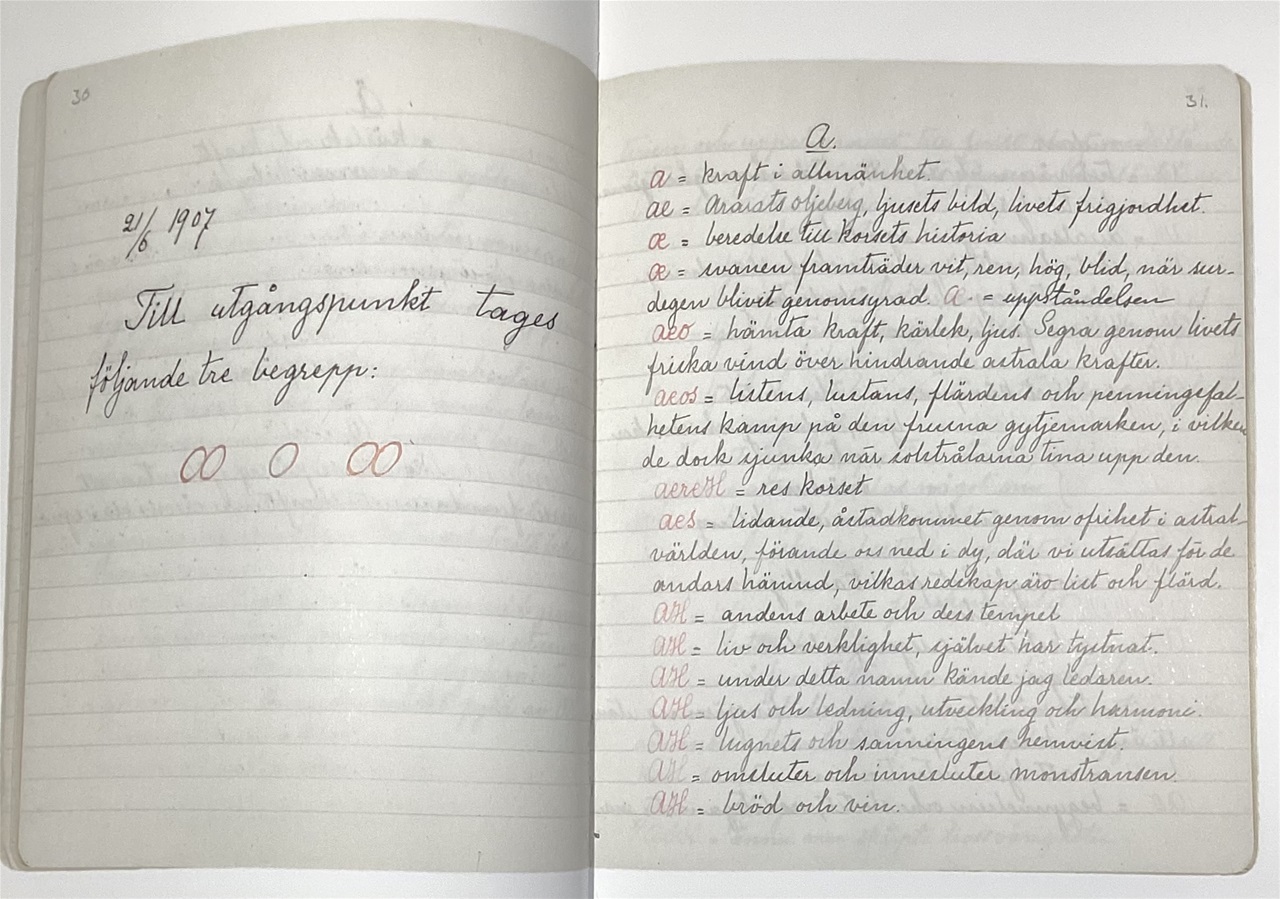 30
21/6 1907
Till utgångspunkt tages
följande tre begrepp:
oo o oo
31.
a.
a = kraft i allmänhet.
ae = Ararats oljeberg, ljusets bild, livets frigjordhet.
æ = beredelse till korsets historia
æ = svanen framträder vit, ren, hög, blid, när sur-
degen blivit genomsyrad. a. = uppståndelsen
aeo = hämta kraft, kärlek, ljus. Segra genom livets
friska vind över hindrande astrala krafter.
aeos = listens, lustans, flärdens och penningefal-
hetens kamp på den frusna gytjemarken, i vilken
de dock sjunka när solstrålarna tina upp den.
aereH = res korset
aes = lidande, åstadkommet genom ofrihet i astral-
världen, förande oss ned i dy, där vi utsättas för de
andars hämnd, vilkas redskap äro list och flärd.
aH = andens arbete och dess tempel
aH = liv och verklighet, självet har tystnat.
aH = under detta namn kände jag ledaren.
aH = ljus och ledning, utveckling och harmoni.
aH = lugnets och sanningens hemvist.
aH = omsluter och innesluter monstransen.
aH = bröd och vin.